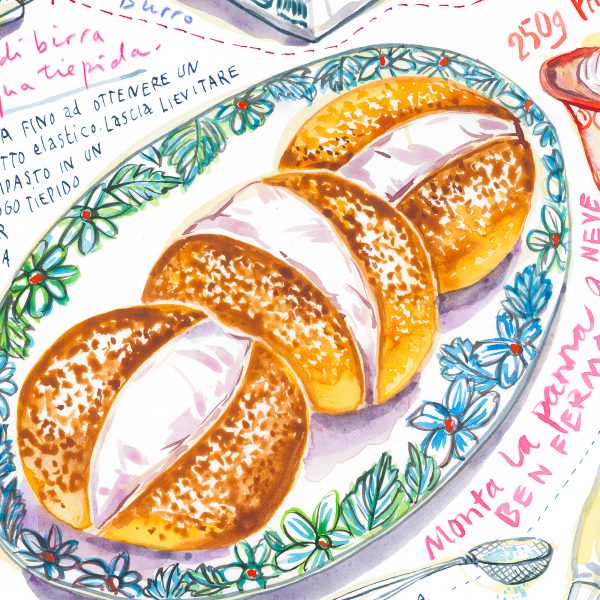 Burro
di birra
qua tiepida.
A FINO ad OTTENERE UN
TTO elastico. Lascia LIEVITARE
IPASTO IN UN
OGO TIEPIDO
R
A
250g
Monta la panna a NEVE
BEN FERMA